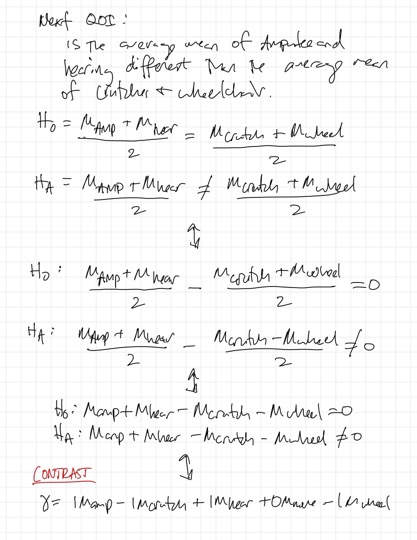 Next QOI:
Is the average mean of Amputee and
hearing different than the average mean
of crutches & wheelchair.
H₀ = (μAmp + μhear)/2 = (μcrutch + μwheel)/2
HA = (μAmp + μhear)/2 ≠ (μcrutch + μwheel)/2
↕
H₀: (μAmp + μhear)/2 − (μcrutch + μwheel)/2 = 0
HA: (μAmp + μhear)/2 − (μcrutch − μwheel)/2 ≠ 0
↕
H₀: μamp + μhear − μcrutch − μwheel = 0
HA: μamp + μhear − μcrutch − μwheel ≠ 0
↕
CONTRAST
γ = 1μamp − 1μcrutch + 1μhear + 0μnone − 1μwheel